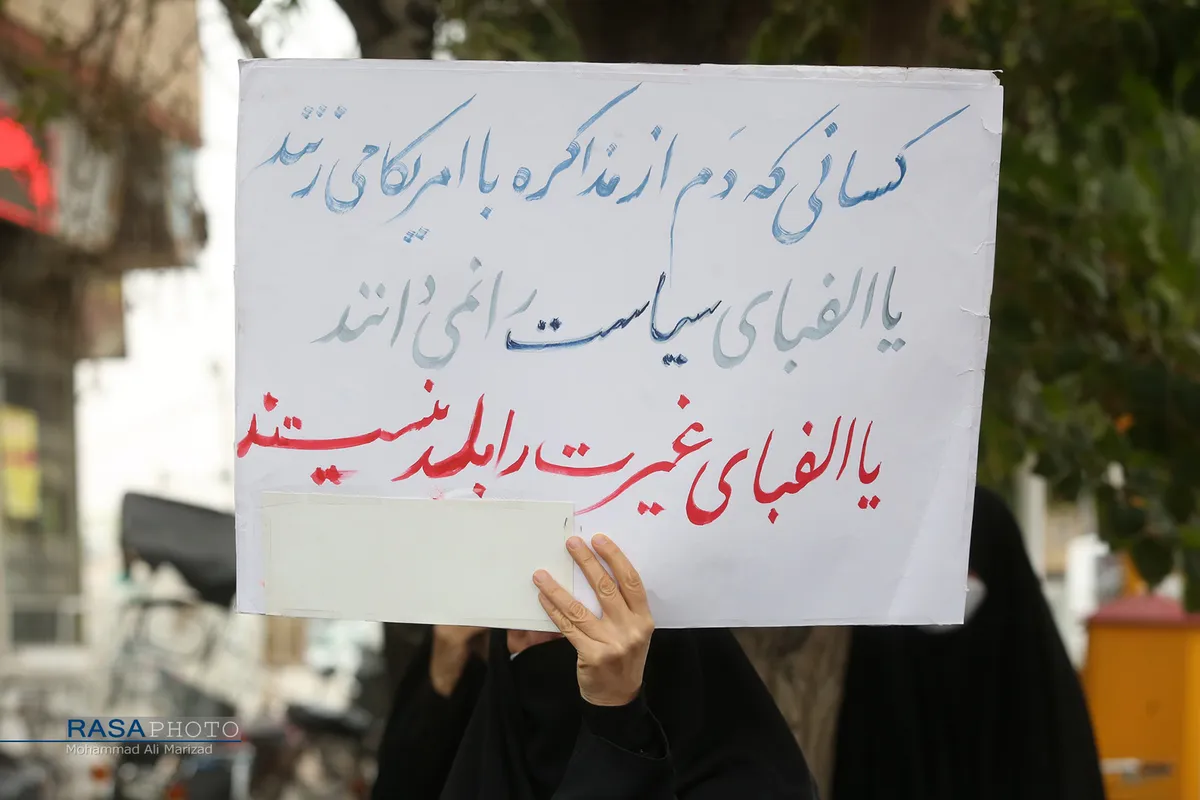 کسانی که دَم از مذاکره با امریکا می زنند
یا الفبای سیاست را نمی دانند
یا الفبای غیرت را بلد نیستند
RASAPHOTO
Mohammad Ali Marizad